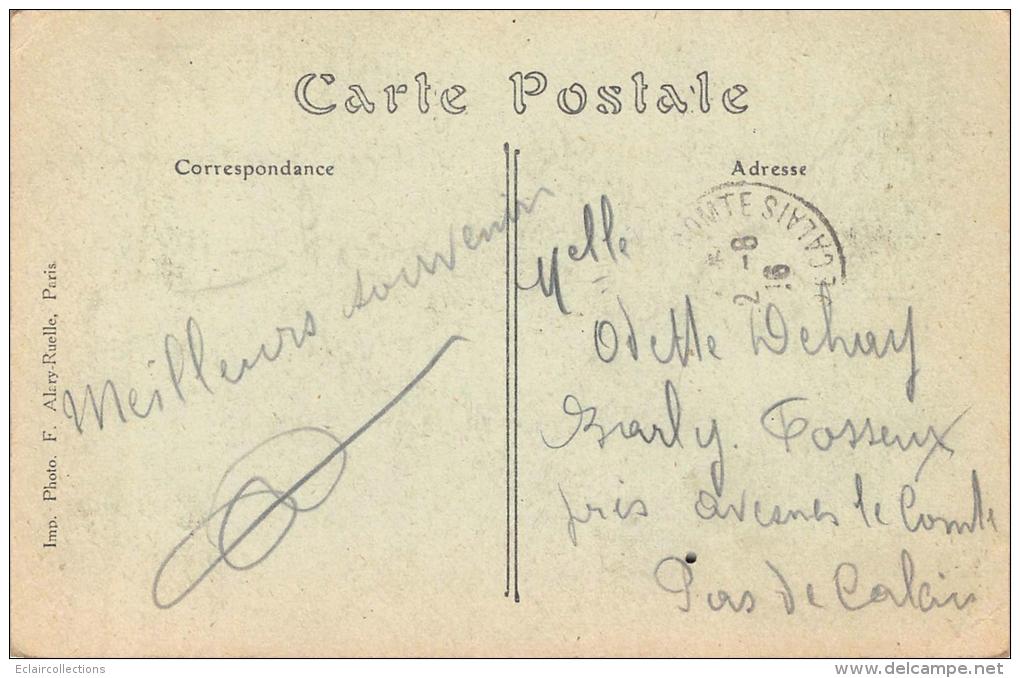 Carte Postale
Correspondance
Adresse
Meilleurs souvenirs
Imp. Photo. F. Alary-Ruelle, Paris
COMTE
CALAIS
2 - 8
16
Melle
Odette Dehay
Barly. Fosseux
près avesnes le Comte
Pas de Calais
Eclaircollections
www.delcampe.net